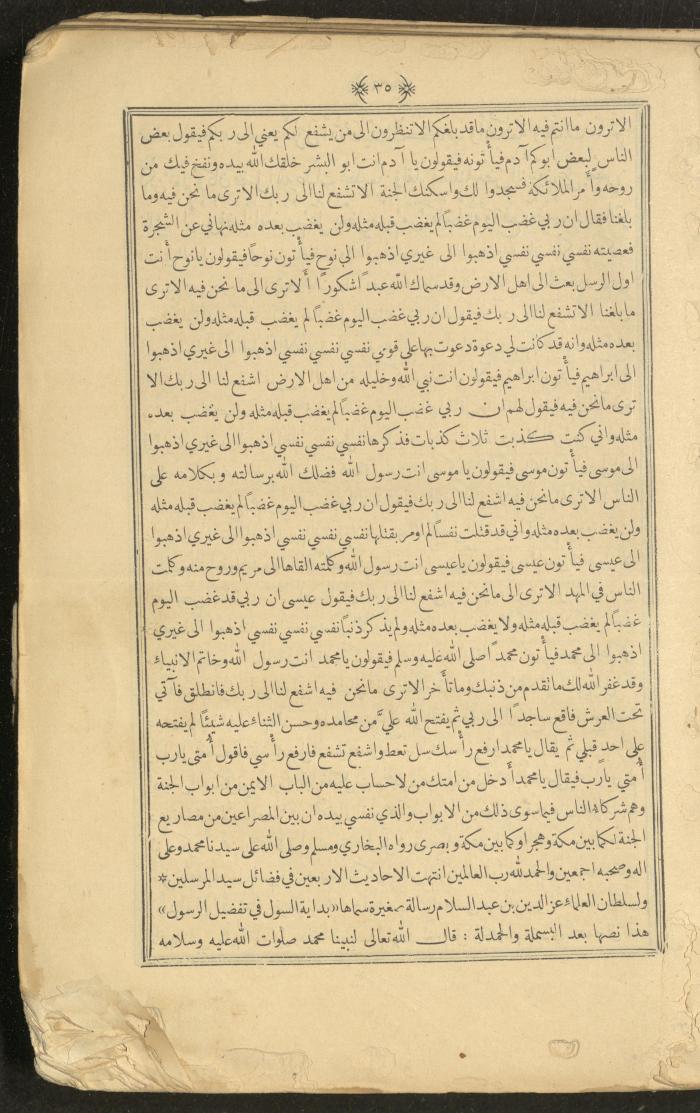 ٣٥
الاترون ما انتم فيه الاترون ما قد بلغكم الاتنظرون الى من يشفع لكم يعني الى ربكم فيقول بعض
الناس لبعض ابوكم آدم فيأتونه فيقولون يا آدم انت ابو البشر خلقك الله بيده ونفخ فيك من
روحه وأمر الملائكة فسجدوا لك واسكنك الجنة الاتشفع لنا الى ربك الاترى ما نحن فيه وما
بلغنا فقال ان ربي غضب اليوم غضباً لم يغضب قبله مثله ولن يغضب بعده مثله نهاني عن الشجرة
فعصيته نفسي نفسي نفسي اذهبوا الى غيري اذهبوا الى نوح فيأتون نوحا فيقولون يا نوح أنت
اول الرسل بعث الى اهل الارض وقد سماك الله عبداً شكوراً ألاترى الى ما نحن فيه الاترى
ما بلغنا الاتشفع لنا الى ربك فيقول ان ربي غضب اليوم غضباً لم يغضب قبله مثله ولن يغضب
بعده مثله وانه قد كانت لي دعوة دعوت بها على قومي نفسي نفسي نفسي اذهبوا الى غيري اذهبوا
الى ابراهيم فيأتون ابراهيم فيقولون انت نبي الله وخليله من اهل الارض اشفع لنا الى ربك الا
ترى ما نحن فيه فيقول لهم ان ربي غضب اليوم غضباً لم يغضب قبله مثله ولن يغضب بعده
مثله واني كنت كذبت ثلاث كذبات فذكرها نفسي نفسي نفسي اذهبوا الى غيري اذهبوا
الى موسى فيأتون موسى فيقولون يا موسى انت رسول الله فضلك الله برسالته وبكلامه على
الناس الاترى ما نحن فيه اشفع لنا الى ربك فيقول ان ربي غضب اليوم غضباً لم يغضب قبله مثله
ولن يغضب بعده مثله واني قد قتلت نفساً لم اومر بقتلها نفسي نفسي نفسي اذهبوا الى غيري اذهبوا
الى عيسى فيأتون عيسى فيقولون يا عيسى انت رسول الله وكلمته القاها الى مريم وروح منه وكلمت
الناس في المهد الاترى الى ما نحن فيه اشفع لنا الى ربك فيقول عيسى ان ربي قد غضب اليوم
غضباً لم يغضب قبله مثله ولا يغضب بعده مثله ولم يذكر ذنباً نفسي نفسي نفسي اذهبوا الى غيري
اذهبوا الى محمد فيأتون محمداً صلى الله عليه وسلم فيقولون يا محمد انت رسول الله وخاتم الانبياء
وقد غفر الله لك ما تقدم من ذنبك وما تأخر الاترى ما نحن فيه اشفع لنا الى ربك فانطلق فآتي
تحت العرش فاقع ساجداً الى ربي ثم يفتح الله عليَّ من محامده وحسن الثناء عليه شيئاً لم يفتحه
على احد قبلي ثم يقال يا محمد ارفع رأسك سل تعط واشفع تشفع فارفع رأسي فاقول أمتي يارب
أمتي يارب فيقال يا محمد أدخل من امتك من لاحساب عليه من الباب الايمن من ابواب الجنة
وهم شركاء الناس فيما سوى ذلك من الابواب والذي نفسي بيده ان بين المصراعين من مصاريع
الجنة لكما بين مكة وهجر اوكما بين مكة وبصرى رواه البخاري ومسلم وصلى الله على سيدنا محمد وعلى
اله وصحبه اجمعين والحمد لله رب العالمين انتهت الاحاديث الاربعين في فضائل سيد المرسلين *
ولسلطان العلماء عز الدين بن عبد السلام رسالة صغيرة سماها «بداية السول في تفضيل الرسول»
هذا نصها بعد البسملة والحمدلة : قال الله تعالى لنبينا محمد صلوات الله عليه وسلامه